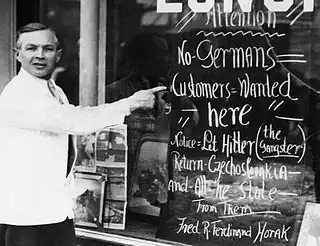 LUNCH
Attention
No=Germans=
Customers=Wanted
"here"
Notice=Let Hitler (the Gangster)
Return=Czechoslovakia=
=and=All the State=
From Them
Fred R. Ferdinand Horak